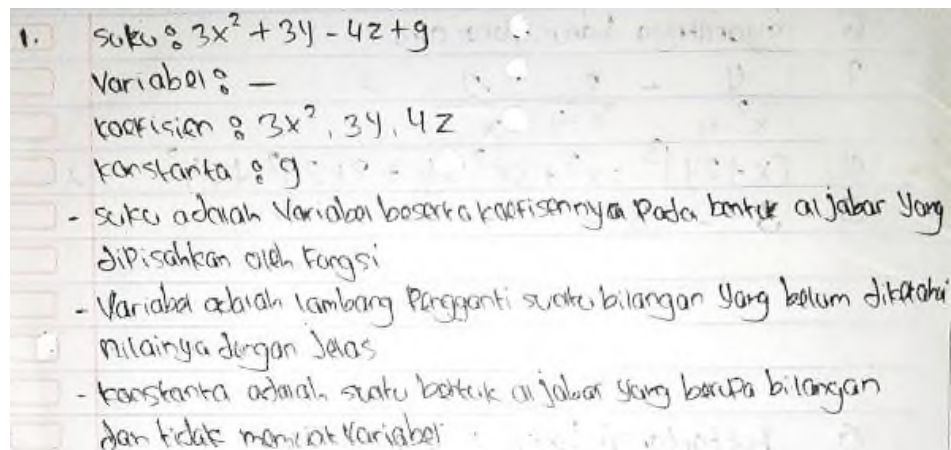 1. Suku : 3x² + 3y - 4z + 9
Variabel : —
koefisien : 3x², 3y, 4z
konstanta : 9
- suku adalah Variabel beserta koefisennya Pada bentuk aljabar yang
dipisahkan oleh Fungsi
- Variabel adalah lambang Pengganti suatu bilangan yang belum diketahui
nilainya dengan Jelas
- konstanta adalah suatu bentuk aljabar yang berupa bilangan
dan tidak memuat Variabel